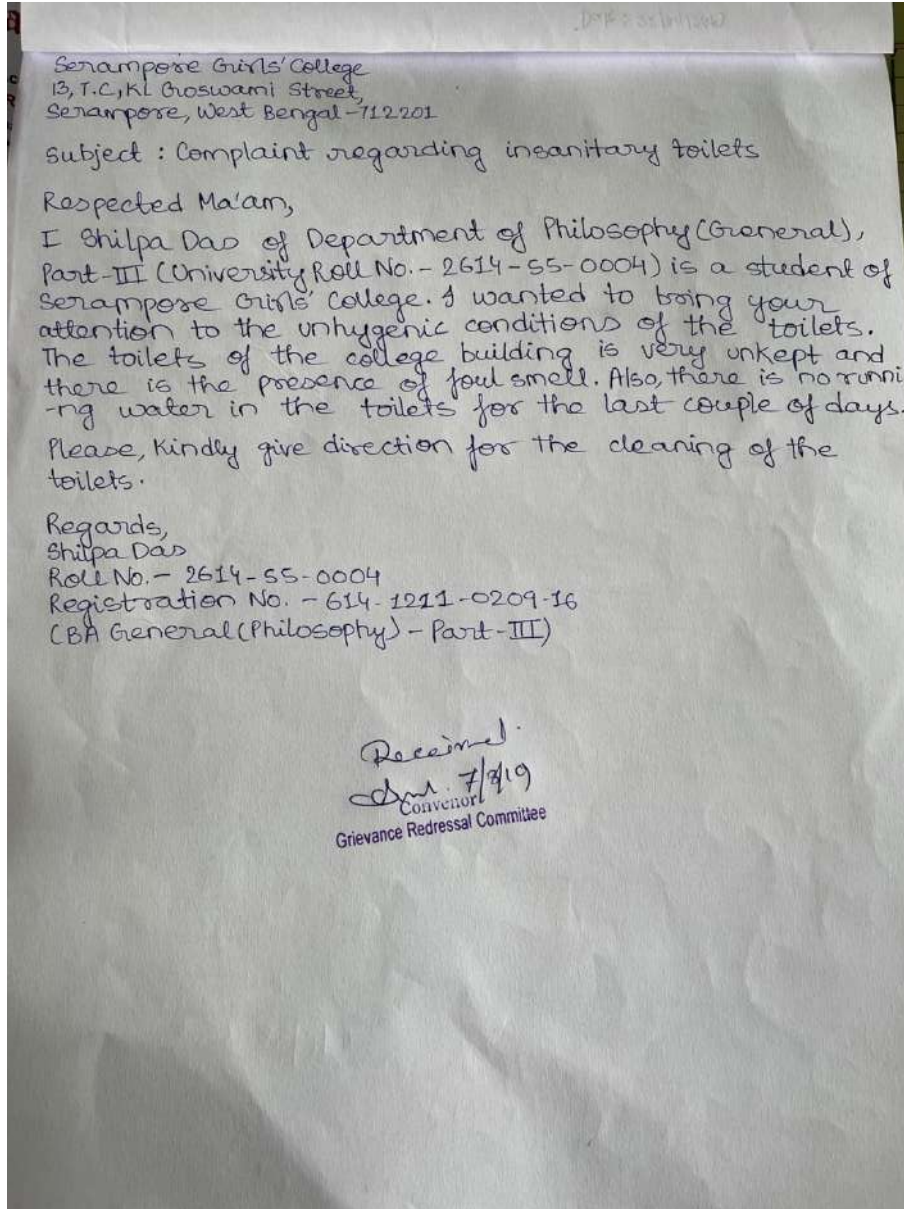 Serampore Girls' College
13, T.C, KL Goswami Street,
Serampore, West Bengal-712201
Subject : Complaint regarding insanitary toilets
Respected Ma'am,
I Shilpa Das of Department of Philosophy (General),
Part-III (University Roll No. - 2614-55-0004) is a student of
Serampore Girls' College. I wanted to bring your
attention to the unhygenic conditions of the toilets.
The toilets of the college building is very unkept and
there is the presence of foul smell. Also, there is no runni
-ng water in the toilets for the last couple of days.
Please, Kindly give direction for the cleaning of the
toilets.
Regards,
Shilpa Das
Roll No. - 2614-55-0004
Registration No. - 614-1211-0209-16
(BA General (Philosophy) - Part-III)
Received.
7/8/19
Convenor
Grievance Redressal Committee